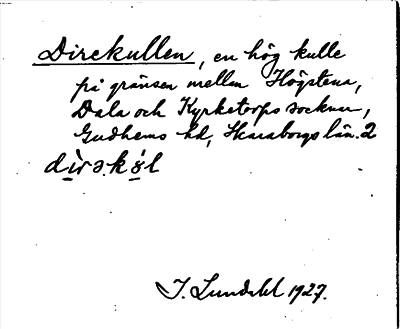 Direkullen, en hög kulle
på gränsen mellan Högstena,
Dala och Kyrketorps socknar,
Gudhems hd, Skaraborgs län. 2
dìrə.kʊ́l
I. Lundahl 1927.